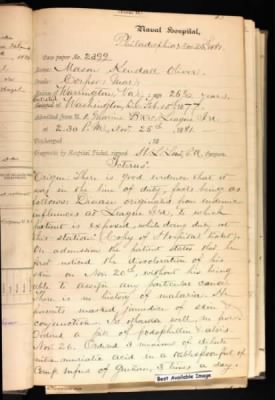 Naval Hospital,
Philadelphia Nov 25th, 1881.
Case paper No. 2392
Name Mason Kendall Oliver
Corpus. Mar.
Warrington, Va., age 26 8/12 years.
Washington, DC Feb. 10th 1877.
Admitted from U.S. Marine Bks, League Isd
at 2.30 P.M., Nov. 25th, 1881.
Discharged , 18
Diagnosis by Hospital Ticket, signed , Surgeon.
Icterus.
Origin: There is good evidence that it
was in the line of duty, facts being as
follows: Disease originated from endemic
influences at League Isd, to which
patient is exposed, while doing duty at
his station. (Copy of Hospital ticket).
On admission the patient states that he
first noticed the discoloration of his
skin on Nov 20th, without his being
able to assign any particular cause.
There is no history of malaria. He
presents marked jaundice of skin &
conjunctiva. is well, no pain.
Ordered a pill of podophyllin & aloes.
Nov. 26. Ordered 5 minims of dilute
nitro muriatic acid in a tablespoonful of
Comp. infus of Gentian, 3 times a day.
Best Available Image